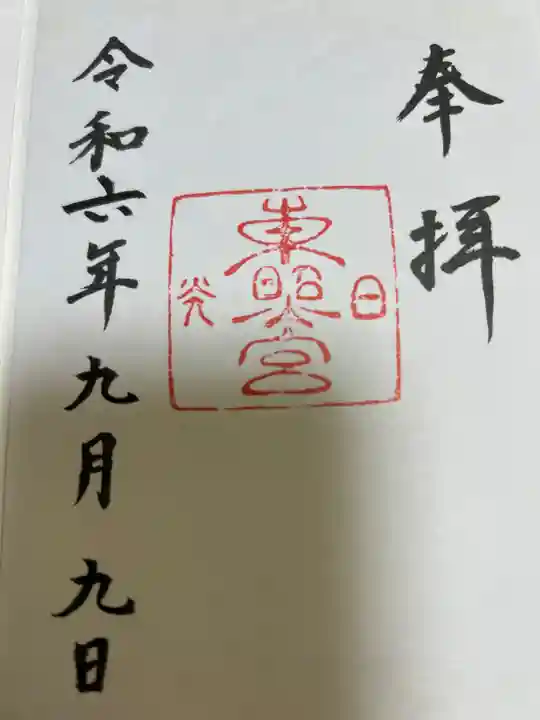 奉拝
日光
東照宮
令和六年九月九日